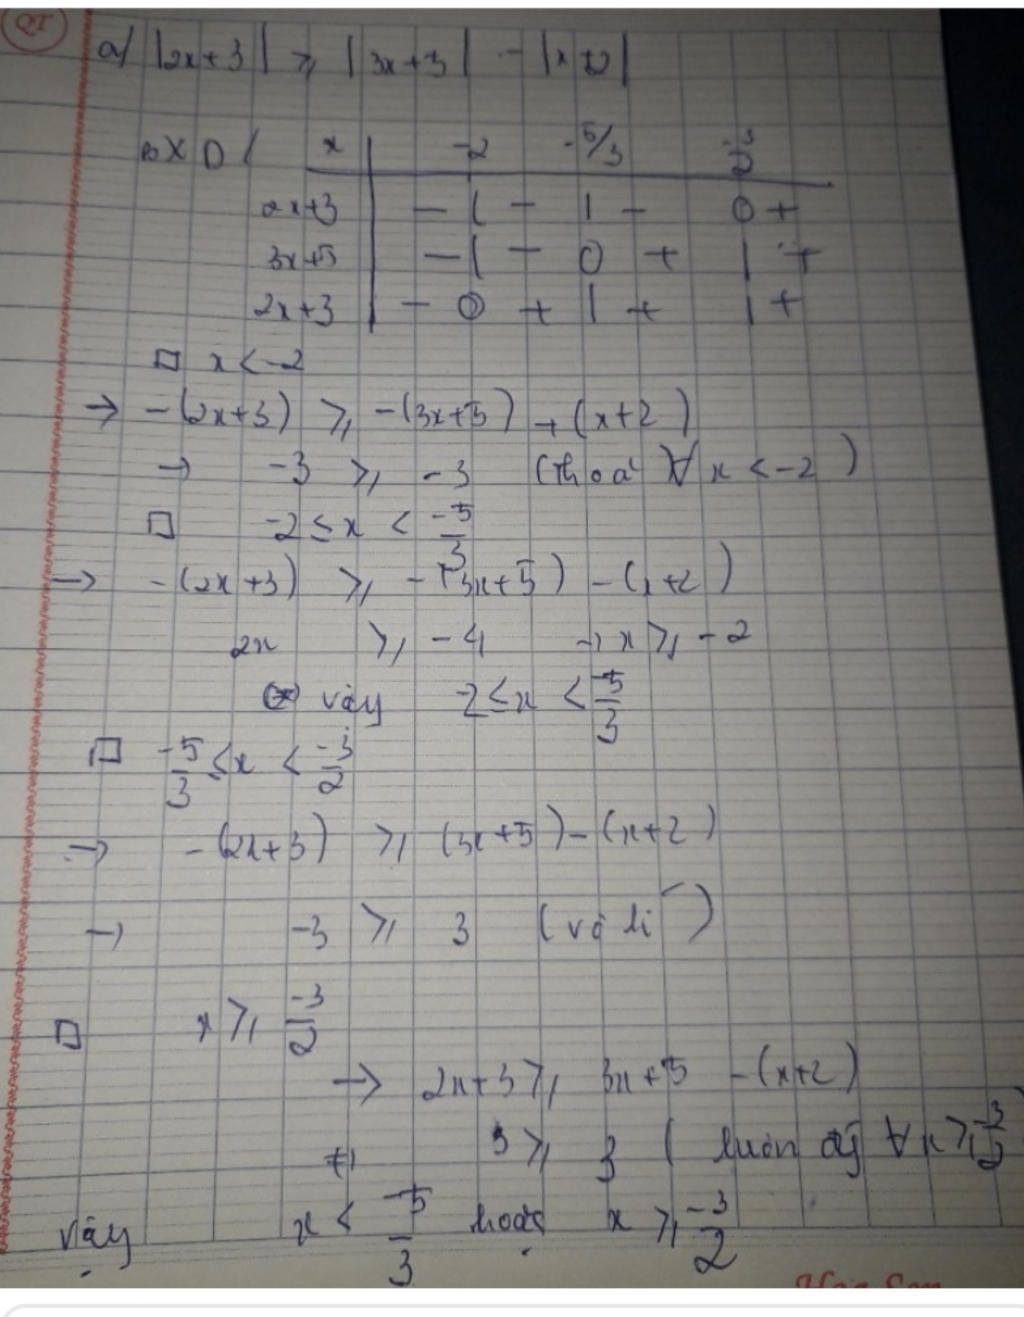 a) |2x+3| ≥ |3x+3| - |x+2|
BXD / x -2 -5/3 -3/2
2x+3 - | - | - 0 +
3x+5 - | - 0 + | +
2x+3 - 0 + | + | +
□ x < -2
→ -(2x+3) ≥ -(3x+5) + (x+2)
→ -3 ≥ -3 (thoả ∀x < -2)
□ -2 ≤ x < -5/3
→ -(2x+3) ≥ -(3x+5) - (x+2)
2x ≥ -4 → x ≥ -2
vậy -2 ≤ x < -5/3
□ -5/3 ≤ x < -3/2
→ -(2x+3) ≥ (3x+5) - (x+2)
→ -3 ≥ 3 (vô lí)
□ x ≥ -3/2
→ 2x+3 ≥ 3x+5 - (x+2)
3 ≥ 3 ( luôn đg ∀x ≥ -3/2
vậy x < -5/3 hoặc x ≥ -3/2